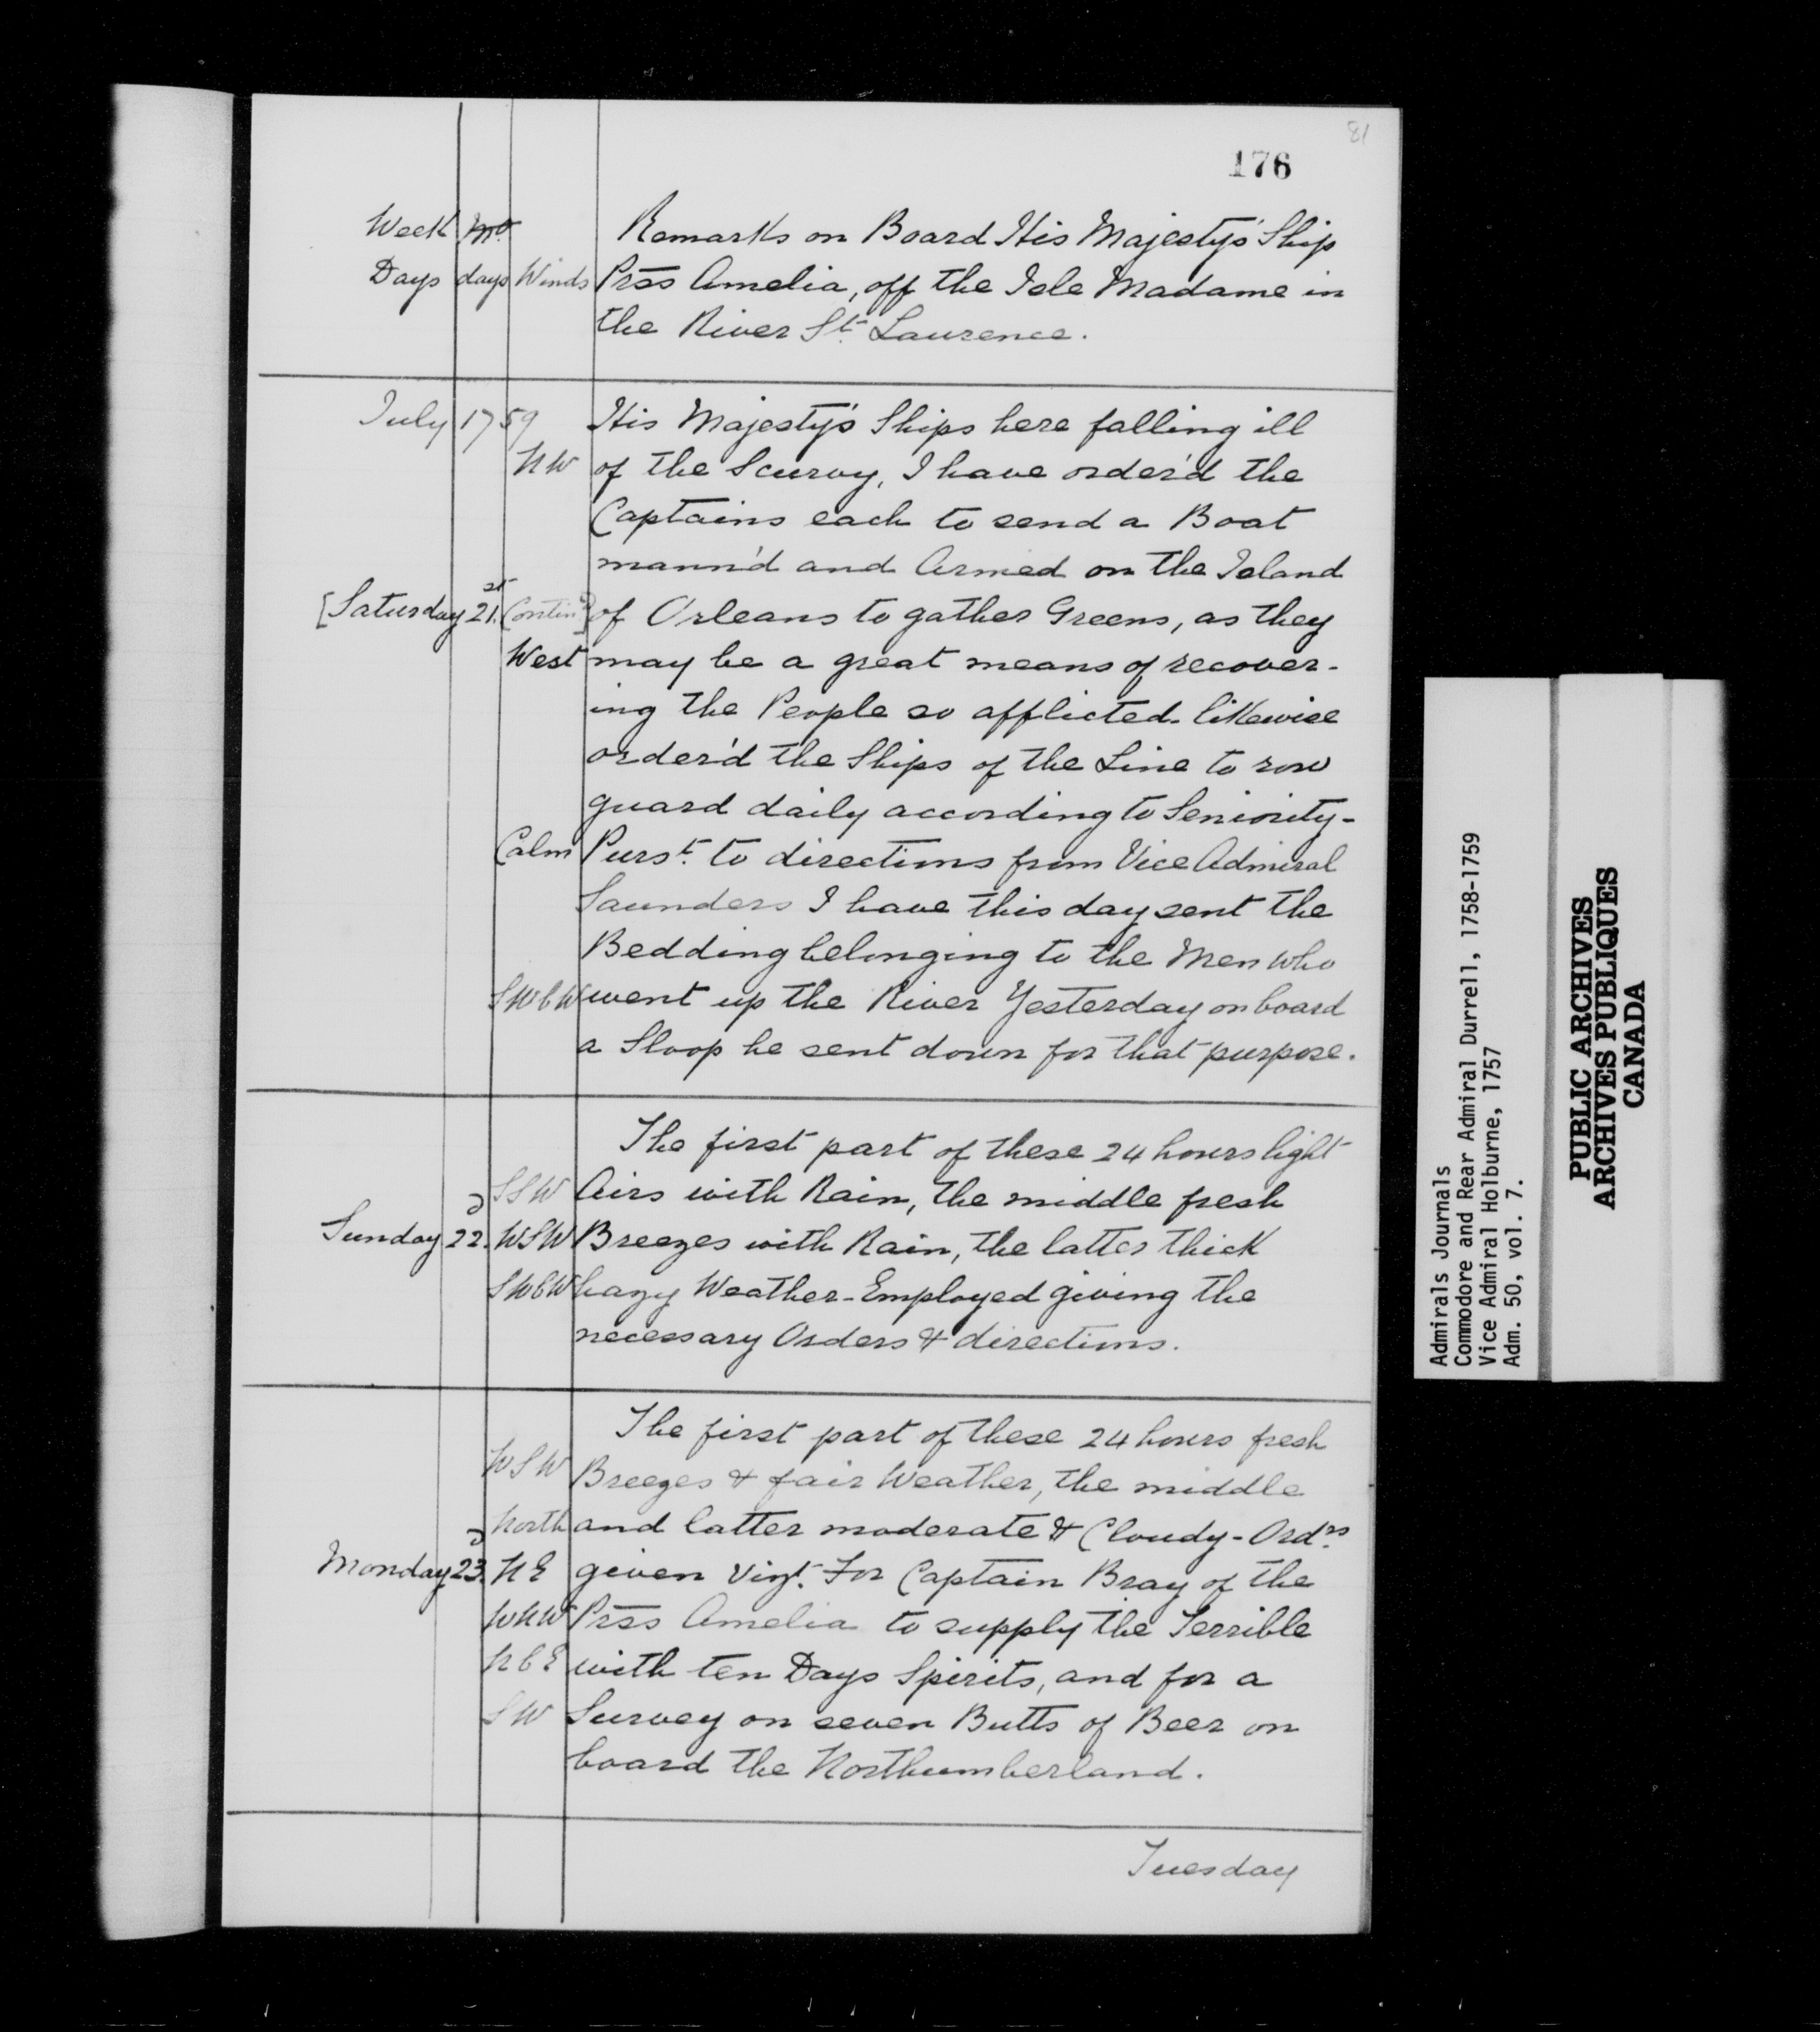 81
176
Week Mo. Remarks on Board His Majesty's Ship
Days days Winds Prss Amelia, off the Isle Madame in
the River St. Laurence.
July 1759 His Majesty's Ships here falling ill
NW of the Scurvy, I have order'd the
Captains each to send a Boat
mann'd and Armed on the Island
[Saturday 21st. Contind] of Orleans to gather Greens, as they
West may be a great means of recover-
ing the People so afflicted. likewise
order'd the Ships of the Line to row
guard daily according to Seniority-
Calm Purst. to directions from Vice Admiral
Saunders I have this day sent the
Bedding belonging to the Men who
SWbW went up the River Yesterday on board
a Sloop he sent down for that purpose.
The first part of these 24 hours light
SSW Airs with Rain, the middle fresh
Sunday 22d. WSW Breezes with Rain, the latter thick
SWbW hazy Weather-Employed giving the
necessary Orders & directions.
The first part of these 24 hours fresh
WSW Breezes & fair Weather, the middle
North and latter moderate & Cloudy-Ordrs.
Monday 23d. NE given Vizt. For Captain Bray of the
WNW Prss Amelia to supply the Terrible
NbE with ten Days Spirits, and for a
SW Survey on seven Butts of Beer on
board the Northumberland.
Tuesday
Admirals Journals
Commodore and Rear Admiral Durrell, 1758-1759
Vice Admiral Holburne, 1757
Adm. 50, vol. 7.
PUBLIC ARCHIVES
ARCHIVES PUBLIQUES
CANADA